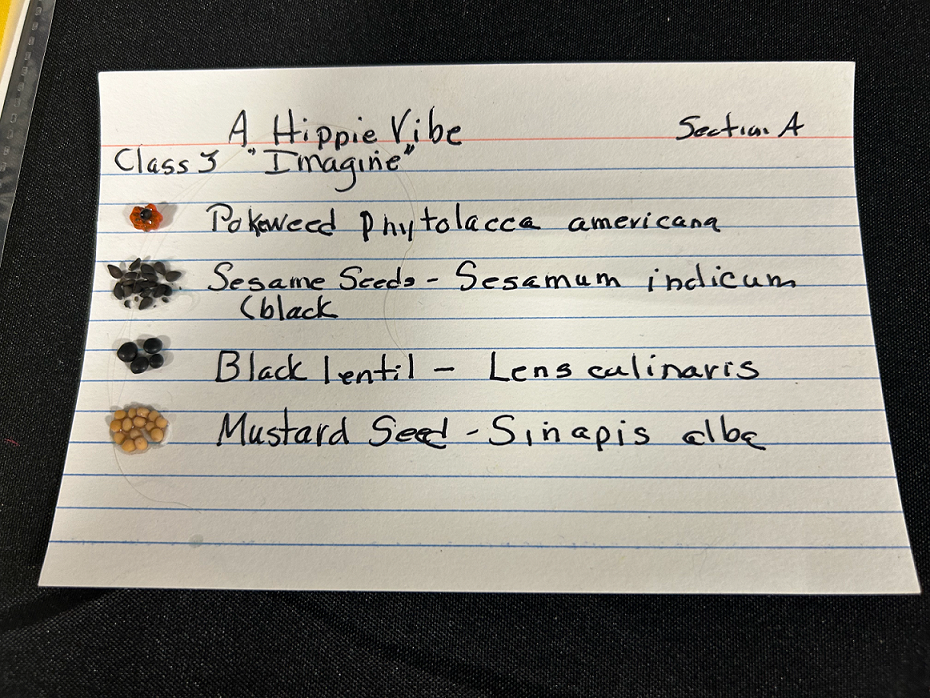 A Hippie Vibe
Section A
Class 3 "Imagine"
Pokeweed Phytolacca americana
Sesame Seeds - Sesamum indicum
(black
Black lentil - Lens culinaris
Mustard Seed - Sinapis alba